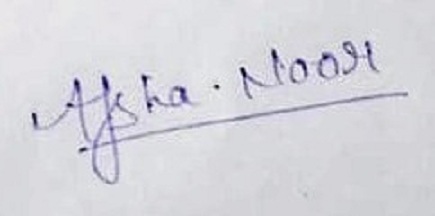 Afsha. Noor